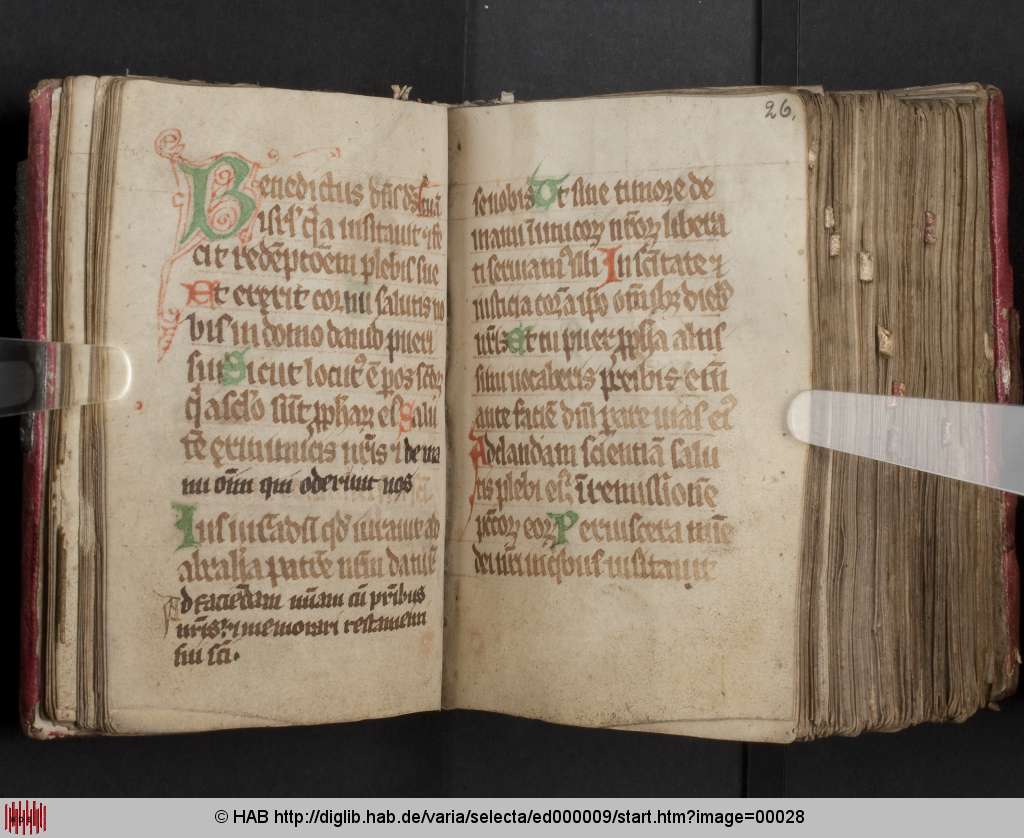 Benedictus dn̄s ds̄ quia
isrl̓ q̄a uisitauit ⁊ fe
cit redēptōem plebis sue
Et erexit cornu salutis no
bis in domo dauid pueri
sui Sicut locut᷒ ē p os sc̄oꝝ
q̄ a sclo sūt ꝓphaꝝ ei᷒ Salu
tē ex inimicis nr̄is ⁊ de ma
nu oīm qui oderunt nos
Ius iurādū qd̄ iurauit ad
abraham patrē nr̄m daturū
Ad faciēdam mīam cū pr̄ibus
nr̄is ⁊ memorari testamenti
sui sc̄i.
26.
se nobis Ut sine timore de
manu inimicoꝝ nr̄oꝝ libera
ti seruiam᷒ illi In sc̄itate ⁊
iusticia corā ipo omībꝫ dieb᷒
nr̄is Et tu puer ꝓpha altis
simi uocaberis preibis eni
ante faciē dn̄i parare uias ei᷒
Ad dandam scientiā salu
tis plebi ei᷒ ī remissionē
pc̄coꝝ eoꝝ Per uiscera mīe
dei nr̄i in qbus uisitauit
© HAB http://diglib.hab.de/varia/selecta/ed000009/start.htm?image=00028